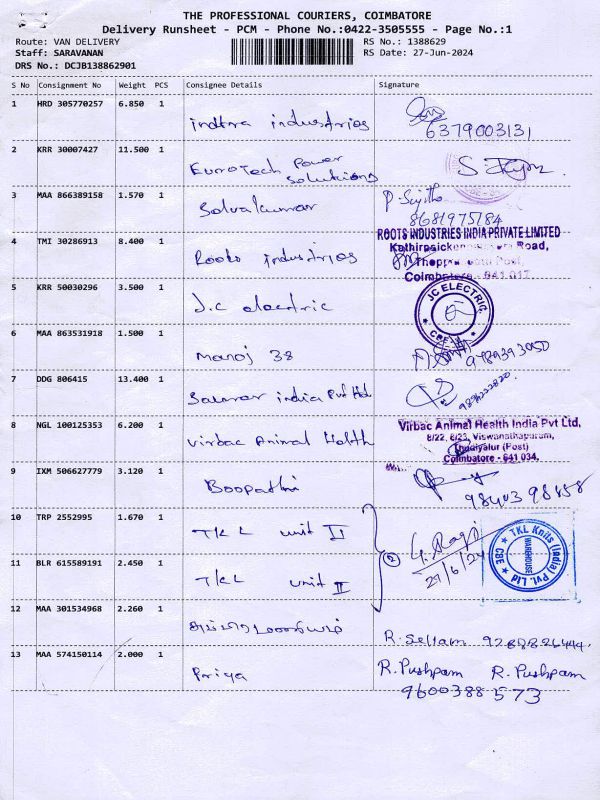 THE PROFESSIONAL COURIERS, COIMBATORE
Delivery Runsheet - PCM - Phone No.:0422-3505555 - Page No.:1
Route: VAN DELIVERY RS No.: 1388629
Staff: SARAVANAN RS Date: 27-Jun-2024
DRS No.: DCJB138862901
S No Consignment No Weight PCS Consignee Details Signature
1 HRD 305770257 6.850 1 indhra industries
6379003131
2 KRR 30007427 11.500 1 EuroTech Power
Solutions
3 MAA 866389158 1.570 1 Selvakumar P. Sujitha
8681975784
4 TMI 30286913 8.400 1 Roots industries
ROOTS INDUSTRIES INDIA PRIVATE LIMITED
Road,
Coimbatore - 641 017.
5 KRR 50030296 3.500 1 J.C electric
JC ELECTRIC
CBE
6 MAA 863531918 1.500 1 Manoj 38 9789393050
7 DDG 806415 13.400 1 india Pvt Ltd
8 NGL 100125353 6.200 1 Virbac Animal Health
Virbac Animal Health India Pvt Ltd,
8/22, 8/23, Viswanathapuram,
(Post)
Coimbatore - 641 034.
9 IXM 506627779 3.120 1 Boopathi
10 TRP 2552995 1.670 1 TKL unit II
② G. Ragi
27/6/24
TKL Knits (India) Pvt. Ltd
WAREHOUSE
CBE
11 BLR 615589191 2.450 1 TKL unit II
12 MAA 301534968 2.260 1
R. Sellam
13 MAA 574150114 2.000 1 Priya R. Pushpam R. Pushpam
9600388573